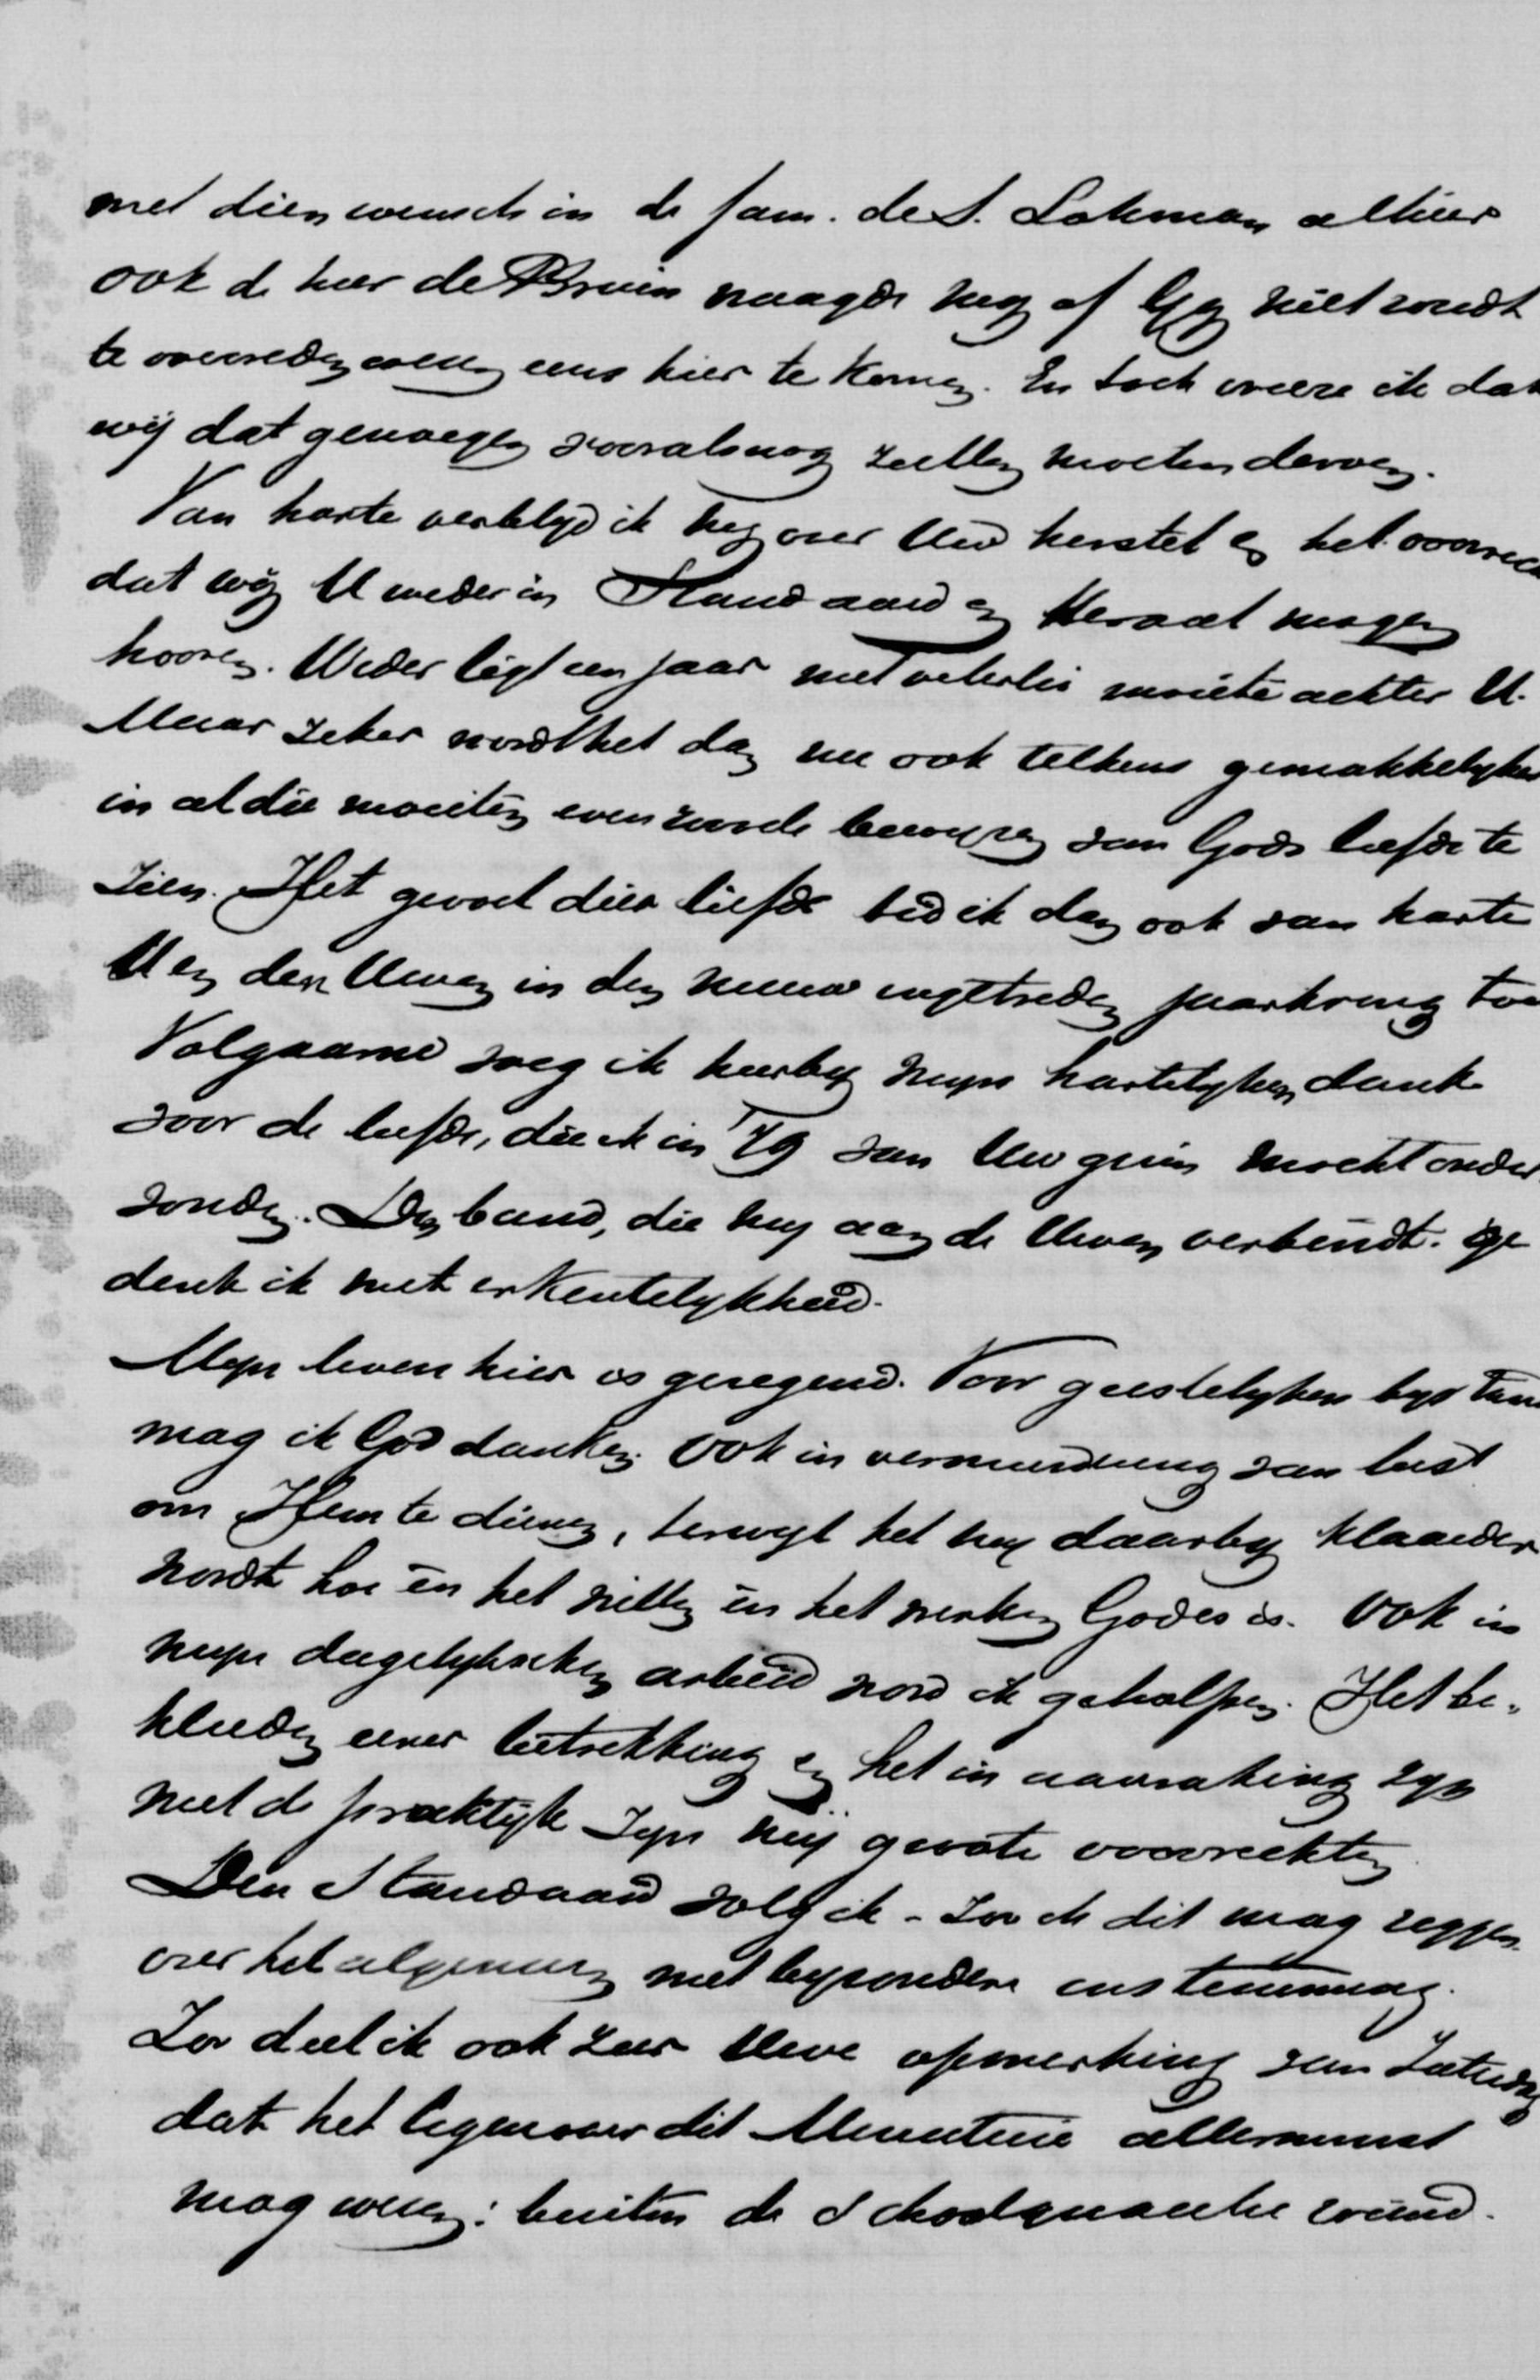 met dien wensch in de fam. de S. Lohman alhier
ook de heer de Bruin vraagde mij of Gij niet woudt
te overreden wezen eens hier te komen. En toch vreeze ik dat
wij dat genoegen vooralsnog zullen moeten derven.
Van harte verblijd ik mij over Uw herstel en het voorrec
dat wij U weder in Standaard en Heraut mogen
hooren. Weder ligt een jaar met velerlei moeite achter U.
Maar zeker wordt het dan nu ook telkens gemakkelijker
in al die moeiten even zoovele bewijzen van Gods liefde te
zien. Het gevoel dier liefde bid ik dan ook van harte
U en den Uwen in den nieuw ingetreden jaarkring toe
Volgaarne voeg ik hierbij mijn hartelijken dank
voor de liefde, die ik in '79 van Uw gezin mocht onder
vonden. Den band, die mij aan de Uwen verbindt. ge
denk ik met erkentelijkheid.
Mijn leven hier is gezegend. Voor geestelijken bijstan
mag ik God danken. Ook in vermeerdering van lust
om Hem te dienen, terwijl het mij daarbij klaarder
wordt hoe èn het willen èn het werken Godes is. Ook in
mijn dagelijkschen arbeid word ik geholpen. Het be-
kleeden eener betrekking en het in aanraking zijn
met de praktijk zijn mij groote voorrechten.
Den Standaard volg ik - zoo ik dit mag zeggen
over het algemeen met bijzondere instemming.
Zoo deel ik ook zeer Uwe opmerking van Saturdag
dat het tegenover dit Ministerie allerminst
mag wezen: buiten de Schoolquaestie vriend.